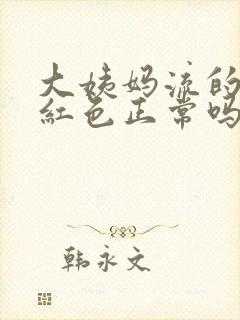 大姨妈流的
红色正常吗
韩永文